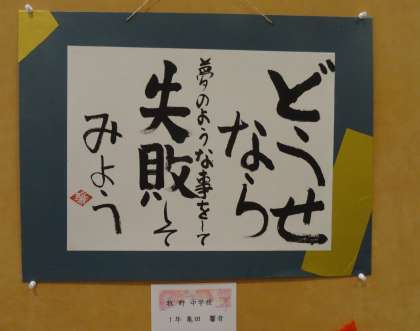 どうせ
なら
夢のような事をして
失敗して
みよう
牧野中学校
1年 亀田